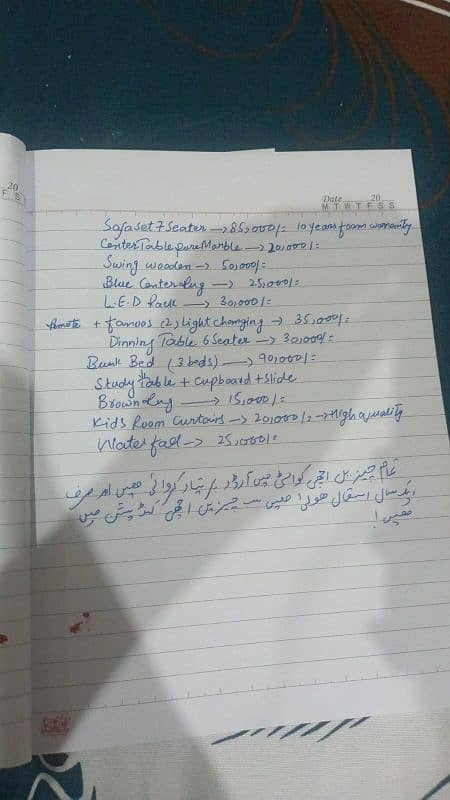 20
F S
Date 20
M T W T F S S
Sofa Set 7 Seater → 85,000/= 10 years foam warranty
Center Table pure Marble → 20,000/=
Swing wooden → 50,000/=
Blue Center Rug → 25,000/=
L.E.D Rack → 30,000/=
Remote + fanoos (2) light changing → 35,000/=
Dinning Table 6 Seater → 30,000/=
Bunk Bed (3 beds) → 90,000/=
Study Table + Cupboard + Slide
Brown Rug → 15,000/=
Kids Room Curtains → 20,000/= → High quality
Water fall → 25,000/=
تمام چیزیں اچھی کوالٹی میں آرڈر پر تیار کروائی ھیں اور صرف
ایک سال استعمال ھوئی ھیں سب چیزیں اچھی کنڈیشن میں
ھیں!